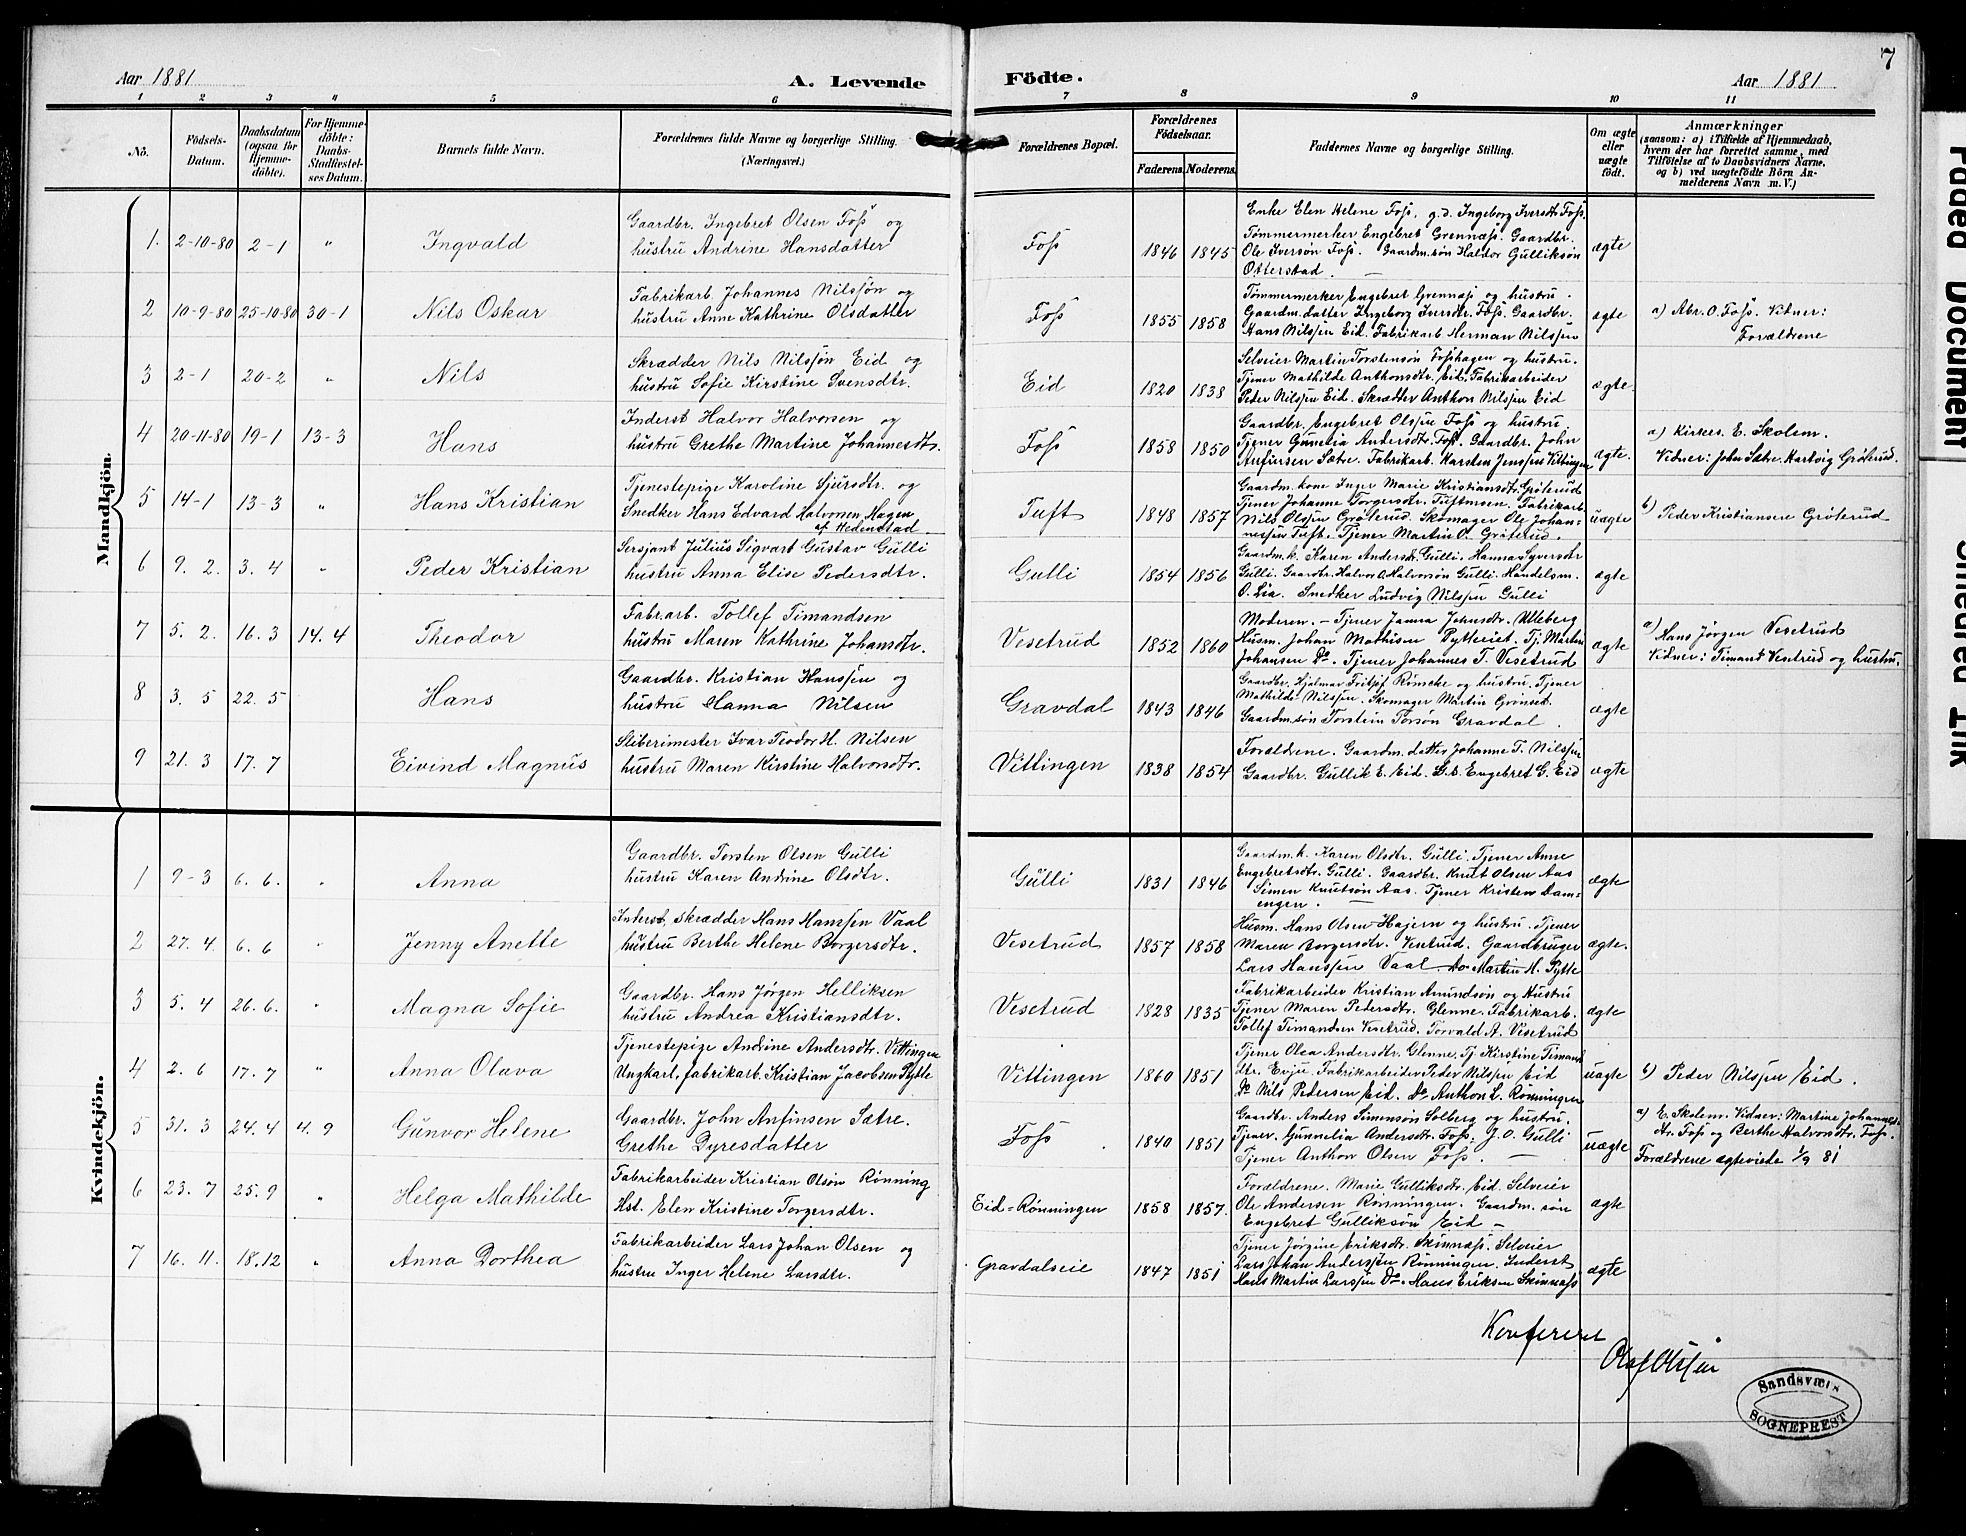 7
Aar 1881
A. Levende
Födte.
Aar 1881
1 2 3 4 5 6 7 8 9 10 11
No.
Födsels-Datum.
Daabsdatum (ogsaa for Hjemme-döbte).
For Hjemme-döbte: Daabs-Stadfestel-ses Datum.
Barnets fulde Navn.
Forældrenes fulde Navne og borgerlige Stilling. (Næringsvei.)
Forældrenes Bopæl.
Forældrenes Födselsaar.
Faderens. Moderens.
Faddernes Navne og borgerlige Stilling.
Om ægte eller uægte födt.
Anmærkninger
(saasom: a) i Tilfælde af Hjemmedaab, hvem der har forrettet samme, med Tilföielse af to Daabsvidners Navne, og b) ved uægtefödte Börn An-melderens Navn m. V.)
Mandkjön.
1. 2-10-80 2-1 " Ingvald
Gaardbr. Ingebret Olsen Foss og
hustru Andrine Hansdatter
Foss 1846 1845
Enke Elen Helene Foss. g.d. Ingeborg Iversdtr Foss.
Tømmermerker Engebret Grennæss. Gaardbr.
Ole Iversøn Foss. Gaardm.søn Haldor Gulliksøn
Otterstad. —
ægte
2 10-9-80 25-10-80 30-1 Nils Oskar
Fabrikarb. Johannes Nilssøn og
hustru Anne Kathrine Olsdatter
Foss 1855 1858
Tømmermerker Engebret Grennæss og hustru.
Gaardm.datter Ingeborg Iversdtr. Foss. Gaardbr.
Hans Nilssen Eid. Fabrikarb. Herman Nilssen
ægte
a) Abr. O. Foss. Vidner:
Forældrene
3 2-1 20-2 " Nils
Skrædder Nils Nilssøn Eid og
hustru Sofie Kirstine Svensdtr.
Eid 1820 1838
Selveier Martin Torstensøn Fosshagen og hustru.
Tjener Mathilde Anthonsdtr. Eid. Fabrikarbeider
Peder Nilssen Eid. Skrædder Anthon Nilssen Eid
ægte
4 20-11-80 19-1 13-3 Hans
Inderst Halvor Halvorsen og
hustru Grethe Martine Johannesdtr.
Foss 1858 1850
Gaardbr. Engebret Olssen Foss og hustru.
Tjener Gunelia Andersdtr. Foss. Gaardbr. John
Anfinsen Sætre. Fabrikarb. Karsten Jenssen Vittingen
ægte.
a) Kirkes. E. Skolem.
Vidner: John Sætre. Hartvig Grøterud.
5 14-1 13-3 " Hans Kristian
Tjenestepige Karoline Sjursdtr. og
Snedker Hans Edvard Halvorsen Hagen
af Hedenstad
Tuft 1848 1857
Gaardm. kone Inger Marie Kristiansdtr. Grøterud
Tjener Johanne Torgersdtr. Tuftmoen. Fabrikarb.
Nils Olssen Grøterud. Skomager Ole Johan-
nessen Tuft. Tjener Martin O. Grøterud.
uægte
b) Peder Kristiansen Grøterud
6 9. 2. 3. 4 " Peder Kristian
Sersjant Julius Sigvart Gustav Gulli
hustru Anna Elise Pedersdtr.
Gulli 1854 1856
Gaardm.k. Karen Andersdtr. Gulli. Hanna Syversdtr
Gulli. Gaardbr. Halvor O. Halvorsøn Gulli. Handelsm.
O. Lia. Snedker Ludvig Nilssen Gulli
ægte
7 5. 2. 16. 3 14. 4 Theodor
Fabr.arb. Tollef Timandsen
hustru Maren Kathrine Johansdtr.
Vesetrud 1852 1860
Moderen. — Tjener Janna Johnsdtr. Ulleberg
Husm. Johan Mathisen Pytteriet. Tj. Martin
Johansen Do. Tjener Johannes T. Vesetrud
ægte
a) Hans Jørgen Vesetrud
Vidner: Timand Ventrud og hustru.
8 3. 5 22. 5 Hans
Gaardbr. Kristian Hanssen og
hustru Hanna Nilsen
Gravdal 1843 1846
Gaardbr. Hjalmar Fritjof Rømcke og hustru. Tjener
Mathilde Nilssen. Skomager Martin Grønset.
Gaardm.søn Torstein Torsøn Gravdal.
ægte
9 21. 3 17. 7 Eivind Magnus
Sliberimester Ivar Teodor H. Nilsen
hustru Maren Kirstine Halvorsdtr.
Vittingen 1838 1854
Forældrene. Gaardm. datter Johanne T. Nilssen
Gaardbr. Gullik E. Eid. G.s. Engebret G. Eid
ægte
Kvindekjön.
1 9-3 6. 6. " Anna
Gaardbr. Torsten Olsen Gulli
hustru Karen Andrine Olsdtr.
Gulli 1831 1846
Gaardm.k. Karen Olsdtr. Gulli. Tjener Anne
Engebretsdtr. Gulli. Gaardbr. Knut Olsen Aas
Simen Knutsøn Aas. Tjener Kristen Dam-
engen. —
ægte
2 27. 4. 6. 6 " Jenny Anette
Inderst, skrædder Hans Hanssen Vaal
hustru Berthe Helene Borgersdtr.
Vesetrud 1857 1858
Husm. Hans Olsen Hajern og hustru. Tjener
Maren Borgersdtr. Ventrud. Gaardbruger
Lars Hanssen Vaal. Do Martin M. Pytte
ægte.
3 5. 4 26. 6. " Magna Sofie
Gaardbr. Hans Jørgen Helliksen
hustru Andrea Kristiansdtr.
Vesetrud 1828 1835
Fabrikarbeider Kristian Amundsøn og Hustru
Tjener Maren Pedersdtr. Glenne. Fabrikarb.
Tollef Timandsen Vesetrud. Torvald A. Vesetrud
ægte
4 2. 6 17. 7 " Anna Olava
Tjenestepige Andrine Andersdtr. Vittingen
Ungkarl, fabrikarb. Kristian Jacobsen Pytte
Vittingen 1860 1851
Tjener Olea Andersdtr. Glenne. Tj. Kirstine Timand
dtr. Evju. Fabrikarbeider Peder Nilssen Eid
Do Nils Pedersen Eid. Do Anthon L. Rønningen
uægte
b) Peder Nilssen Eid.
5 31. 3 24. 4 4. 9 Gunvor Helene
Gaardbr. John Anfinsen Sætre.
Grethe Dyresdatter
Foss 1840 1851
Gaardbr. Anders Simensøn Solberg og hustru.
Tjener. Gunnelia Andersdtr. Foss. J. O. Gulli
Tjener Anthon Olsen Foss. —
uægte
a) E. Skolem. Vidner: Martine Johannes-
dtr. Foss og Berthe Halvorsdtr. Foss.
Forældrene ægteviede 4/9 81
6 23. 7 25. 9 " Helga Mathilde
Fabrikarbeider Kristian Olsøn Rønning
Hst. Elen Kristine Torgersdtr.
Eid=Rønningen 1858 1857.
Forældrene. Marie Gulliksdtr. Eid. Selveier
Ole Andersen Rønningen. Gaardm. søn
Engebret Gulliksøn Eid —
ægte
7 16. 11. 18. 12 " Anna Dorthea
Fabrikarbeider Lars Johan Olsen og
hustru Inger Helene Larsdtr.
Gravdalseie 1847 1851
Tjener Jørgine Eriksdtr. Skinnæss. Selveier
Lars Johan Anderssøn Rønningen. Inderst
Hans Martin Larssen Do. Hans Eriksen Skinnæss
ægte
Konfereret
Olaf Olssen
Sandsværs
SOGNEPREST
Faded Document
Smeared Ink